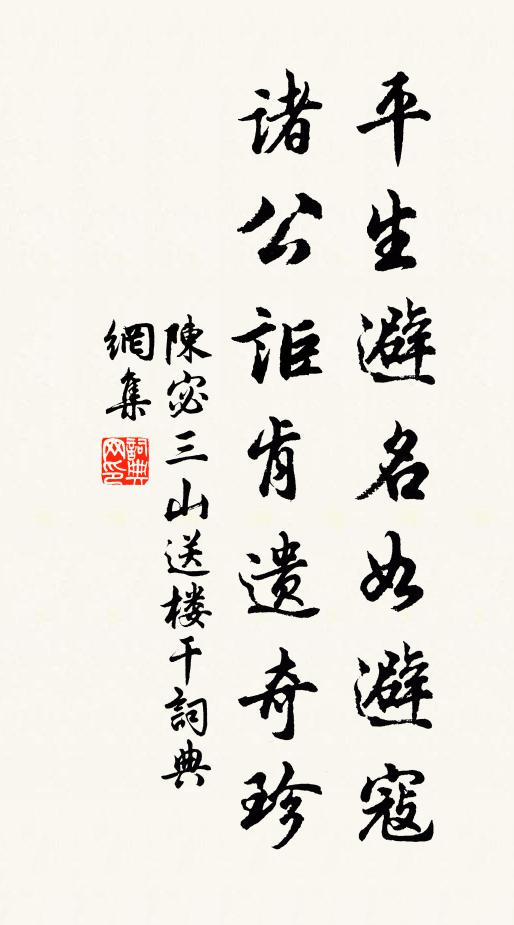 平生避名如避寇
諸公詎肯遺奇珍
陳宓三山送楼干詞典
網集
詞典網印